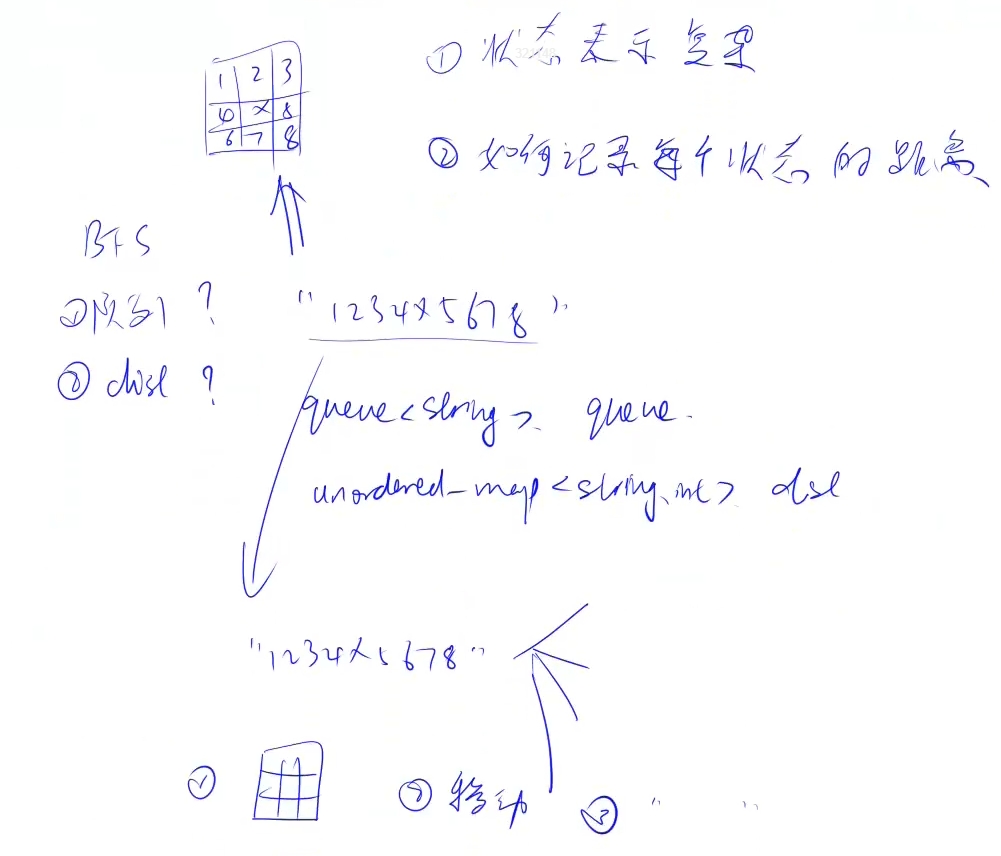 ① 状态表示复杂
1 2 3
4 x 8
6 7 8
② 如何记录每个状态的距离
BFS
①队列 ?
"1234x5678"
② dist ?
queue<string> queue.
unordered_map<string,int> dist
"1234x5678"
①
② 移动
③ " "